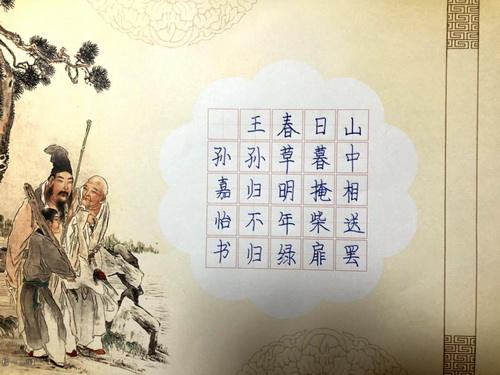 山中相送罢
日暮掩柴扉
春草明年绿
王孙归不归
孙嘉怡书